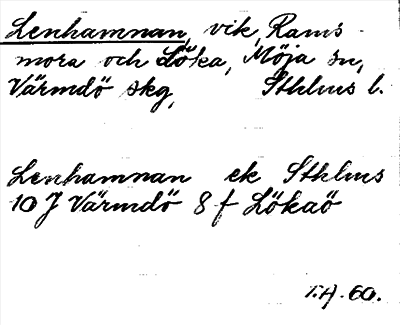 Lenhamnan, vik, Rams-
mora och Löka, Möja sn,
Värmdö skg, Sthlms l.
Lenhamnan ek Sthlms
10 J Värmdö 8 f Lökaö
T.A. 60.